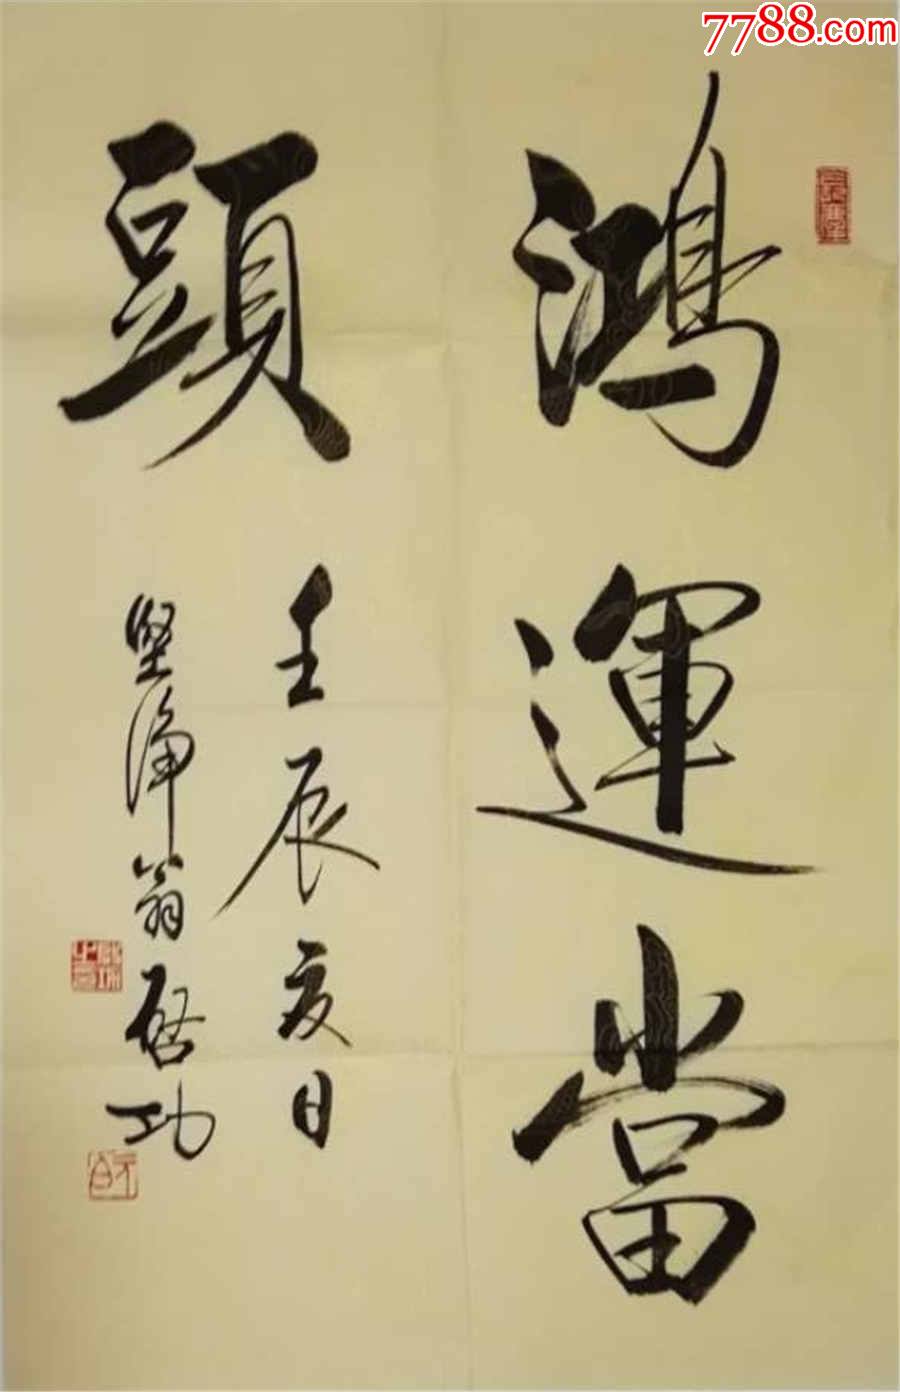 7788.com
鴻運當
頭
壬辰夏日
堅淨翁啓功